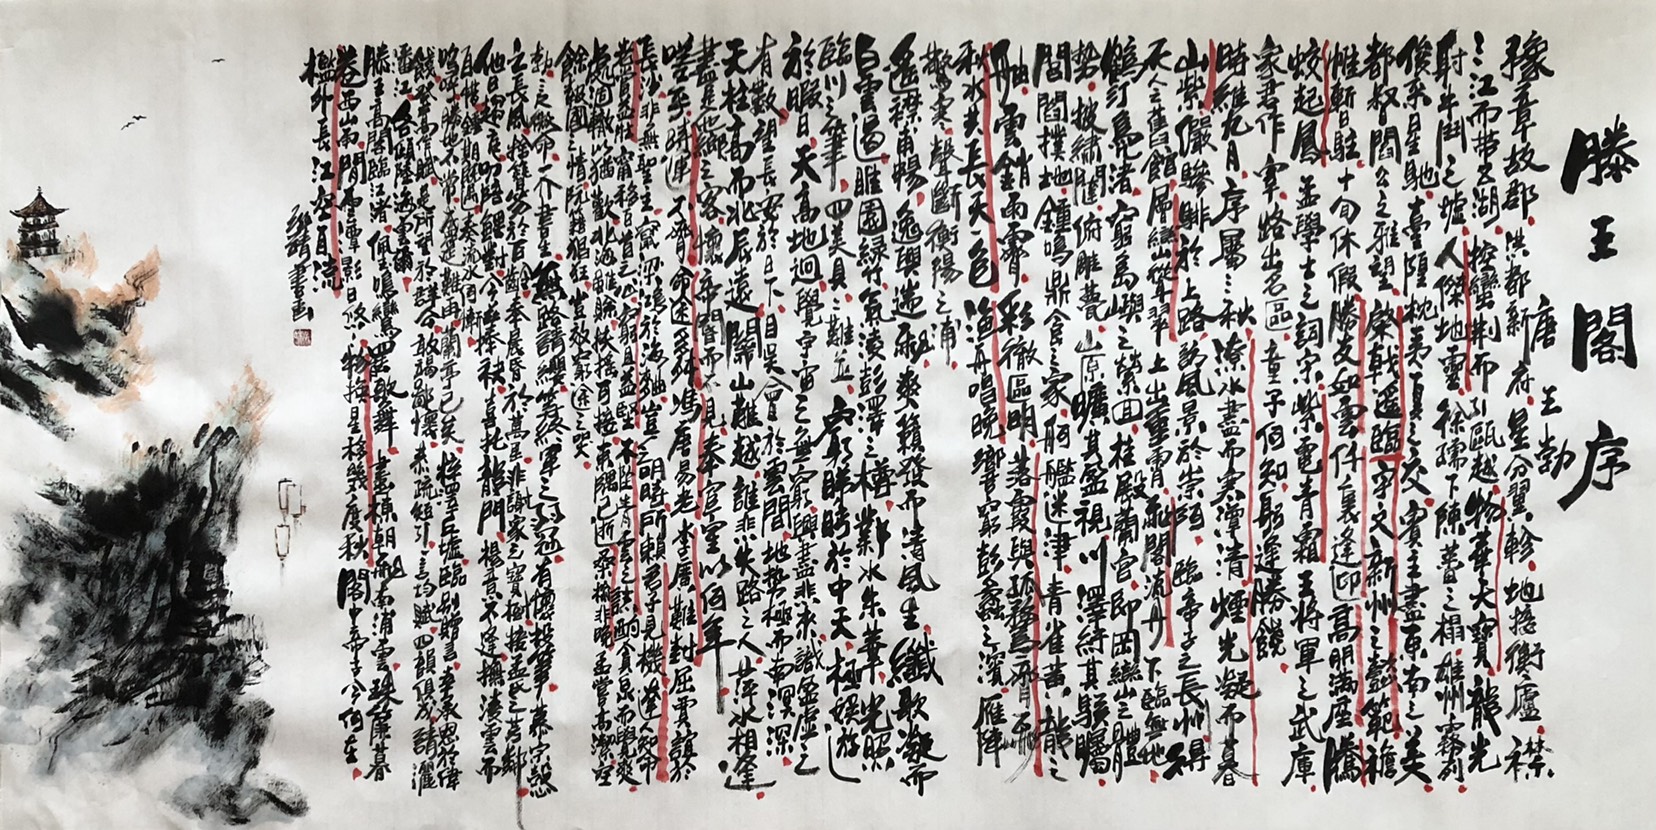 滕王閣序
唐 王勃
豫章故郡洪都新府星分翼軫地接衡廬襟
三江而帶五湖控蠻荊而引甌越物華天寶龍光
射牛斗之墟人傑地靈徐孺下陳蕃之榻雄州霧列
俊采星馳臺隍枕夷夏之交賓主盡東南之美
都督閻公之雅望棨戟遙臨宇文新州之懿範襜
帷暫駐十旬休假勝友如雲千里逢迎高朋滿座騰
蛟起鳳孟學士之詞宗紫電青霜王將軍之武庫
家君作宰路出名區童子何知躬逢勝餞
時維九月序屬三秋潦水盡而寒潭清煙光凝而暮
山紫儼驂騑於上路訪風景於崇阿臨帝子之長洲得
天人之舊館層巒聳翠上出重霄飛閣流丹下臨無地
鶴汀鳧渚窮島嶼之縈回桂殿蘭宮即岡巒之體
勢披繡闥俯雕甍山原曠其盈視川澤紆其駭矚
閭閻撲地鐘鳴鼎食之家舸艦迷津青雀黃龍之
舳雲銷雨霽彩徹區明落霞與孤鶩齊飛
秋水共長天一色漁舟唱晚響窮彭蠡之濱雁陣
驚寒聲斷衡陽之浦
遙襟甫暢逸興遄飛爽籟發而清風生纖歌凝而
白雲遏睢園綠竹氣凌彭澤之樽鄴水朱華光照
臨川之筆四美具二難並窮睇眄於中天極娛遊
於暇日天高地迥覺宇宙之無窮興盡悲來識盈虛之
有數望長安於日下目吳會於雲間地勢極而南溟深
天柱高而北辰遠關山難越誰悲失路之人萍水相逢
盡是他鄉之客懷帝閽而不見奉宣室以何年
嗟乎時運不齊命途多舛馮唐易老李廣難封屈賈誼於
長沙非無聖主竄梁鴻於海曲豈乏明時所賴君子見機達人知命
老當益壯寧移白首之心窮且益堅不墜青雲之志酌貪泉而覺爽
處涸轍以猶歡北海雖賒扶搖可接東隅已逝桑榆非晚孟嘗高潔空
餘報國情阮籍猖狂豈效窮途之哭
勃三尺微命一介書生無路請纓等終軍之弱冠有懷投筆慕宗慤
之長風捨簪笏於百齡奉晨昏於萬里非謝家之寶樹接孟氏之芳鄰
他日趨庭叨陪鯉對今茲捧袂喜托龍門楊意不逢撫凌雲而
自惜鍾期既遇奏流水何慚
嗚呼勝地不常盛筵難再蘭亭已矣梓澤丘墟臨別贈言幸承恩於偉
餞登高作賦是所望於群公敢竭鄙懷恭疏短引一言均賦四韻俱成請灑
潘江各傾陸海云爾
滕王高閣臨江渚佩玉鳴鸞罷歌舞畫棟朝飛南浦雲珠簾暮
捲西山雨閒雲潭影日悠悠物換星移幾度秋閣中帝子今何在
檻外長江空自流